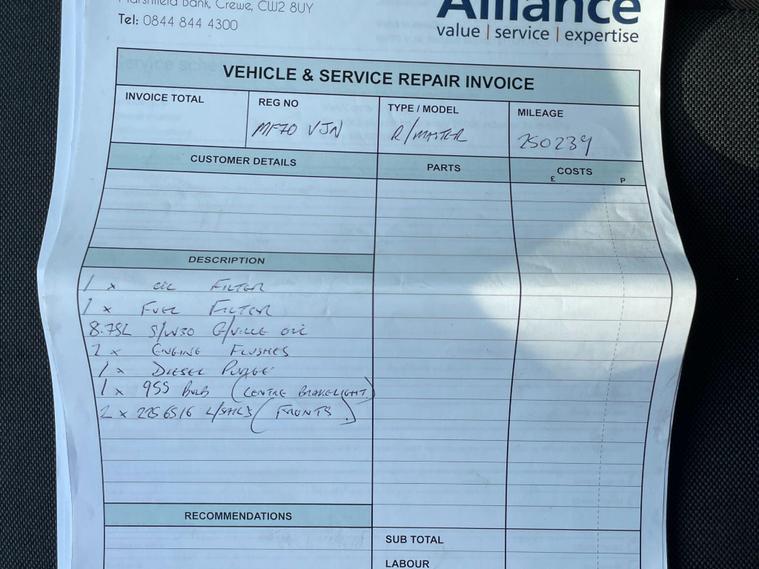 Marshfield Bank, Crewe, CW2 8UY
Tel: 0844 844 4300
Alliance
value | service | expertise
VEHICLE & SERVICE REPAIR INVOICE
INVOICE TOTAL
REG NO
MF70 VJN
TYPE / MODEL
R/MASTER
MILEAGE
250239
CUSTOMER DETAILS
PARTS
COSTS
£ P
DESCRIPTION
1 x OIL FILTER
1 x FUEL FILTER
8.75L 5/W30 G/VILLE OIL
2 x ENGINE FLUSHES
1 x DIESEL PURGE
1 x 955 BULB (CENTRE BRAKELIGHT)
2 x 2256516 (FRONTS)
RECOMMENDATIONS
SUB TOTAL
LABOUR